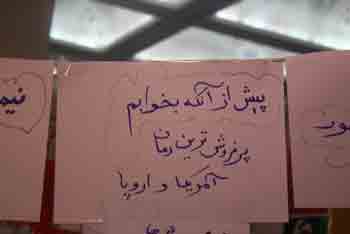 پیش از آنکه بخوابم
پرفروش‌ترین رمان
آمریکا و اروپا